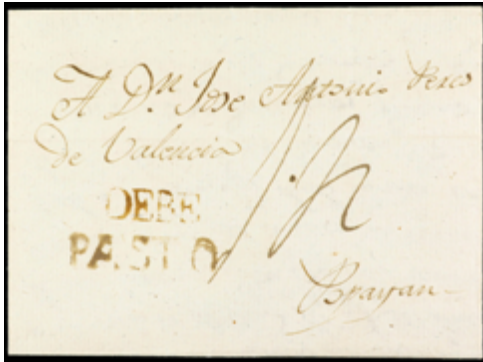 A Dn. Jose Antonio Peres
de Valencia
DEBE
PASTO
Popayan